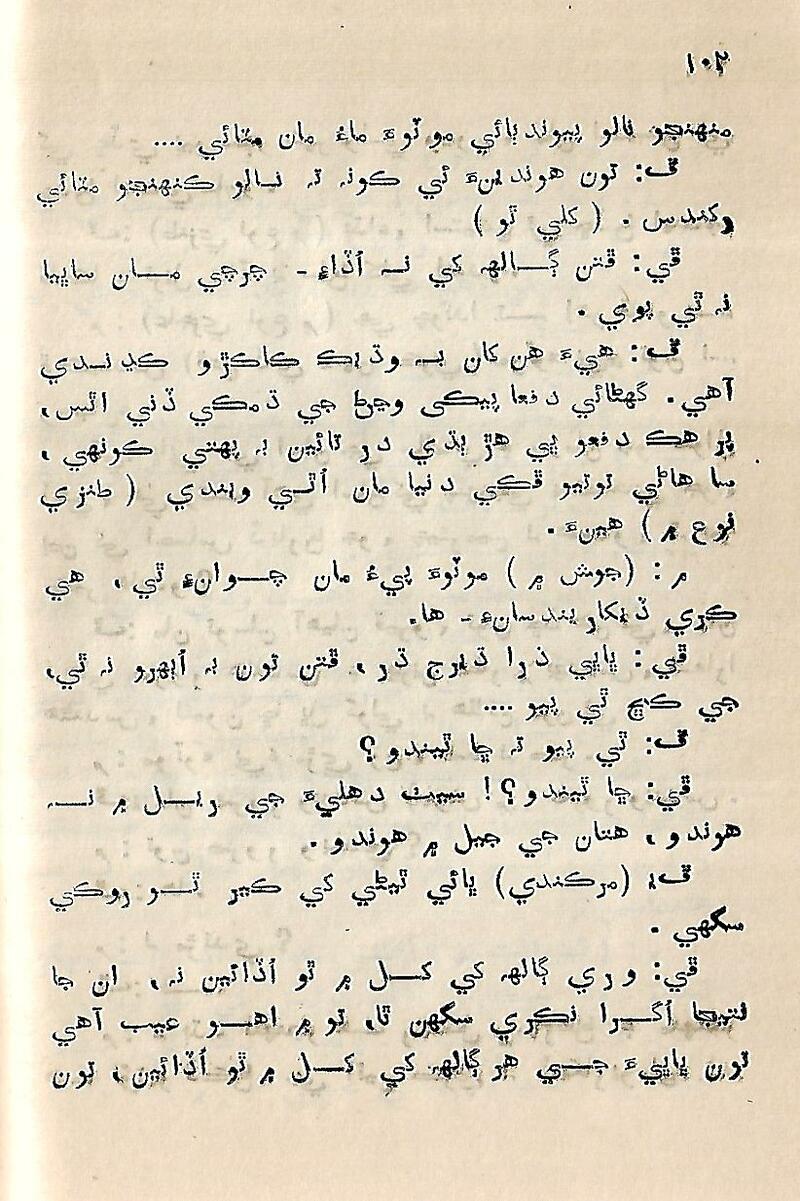 ١٠٢
منهنجو نالو پيوند ٻائي موٽوءَ ماءُ مان مٽائي ....
ف: تون هوندينءَ ئي ڪونہ تہ نالو ڪنهنجو مٽائي
رکندس . ( کلي ٿو )
ڦي: ڦتن ڳالهہ کي نہ اُڏاءِ - چرچي مان ساڀيا
نہ ٿي پوي .
ف: هيءَ هن کان بہ وڌيڪ ڪاڪڙو ڪڍندي
آهي. گهڻائي دفعا پيڪي وڃڻ جي ڌمڪي ڏني اٿس،
پر هڪ دفعو ٻي هڙ ٻڌي در تائين بہ پهتي ڪونهي،
سا هاڻي توتيو ڦڪي دنيا مان اُٿي ويندي ( طنزي
نوع ۾ ) هينءَ .
م : (جوش ۾ ) موٽوءَ پيءُ مان چوانءِ ٿي، هي
ڪري ڏيکاريندسانءِ - ها.
ڦي: ڀاڀي ذرا ڌيرج ڌر، ڦتن تون بہ اُڀهرو نہ ٿي،
جي ڪڇ ٿي پيو ....
ف: ٿي پيو تہ ڇا ٿيندو ؟
ڦي: ڇا ٿيندو ؟! سيٽ دهليءَ جي ريل ۾ نہ
هوندو، هتان جي جيل ۾ هوندو .
ف: (مرڪندي) ڀائي ٿيڻي کي ڪير ٿو روڪي
سگهي .
ڦي: وري ڳالهہ کي کل ۾ ٿو اُڏائين نہ، ان جا
نتيجا اُگرا نڪري سگهن ٿا، تو ۾ اهو عيب آهي
تون ڀاڀيءَ جي هر ڳالهہ کي کل ۾ ٿو اُڏائين، تون